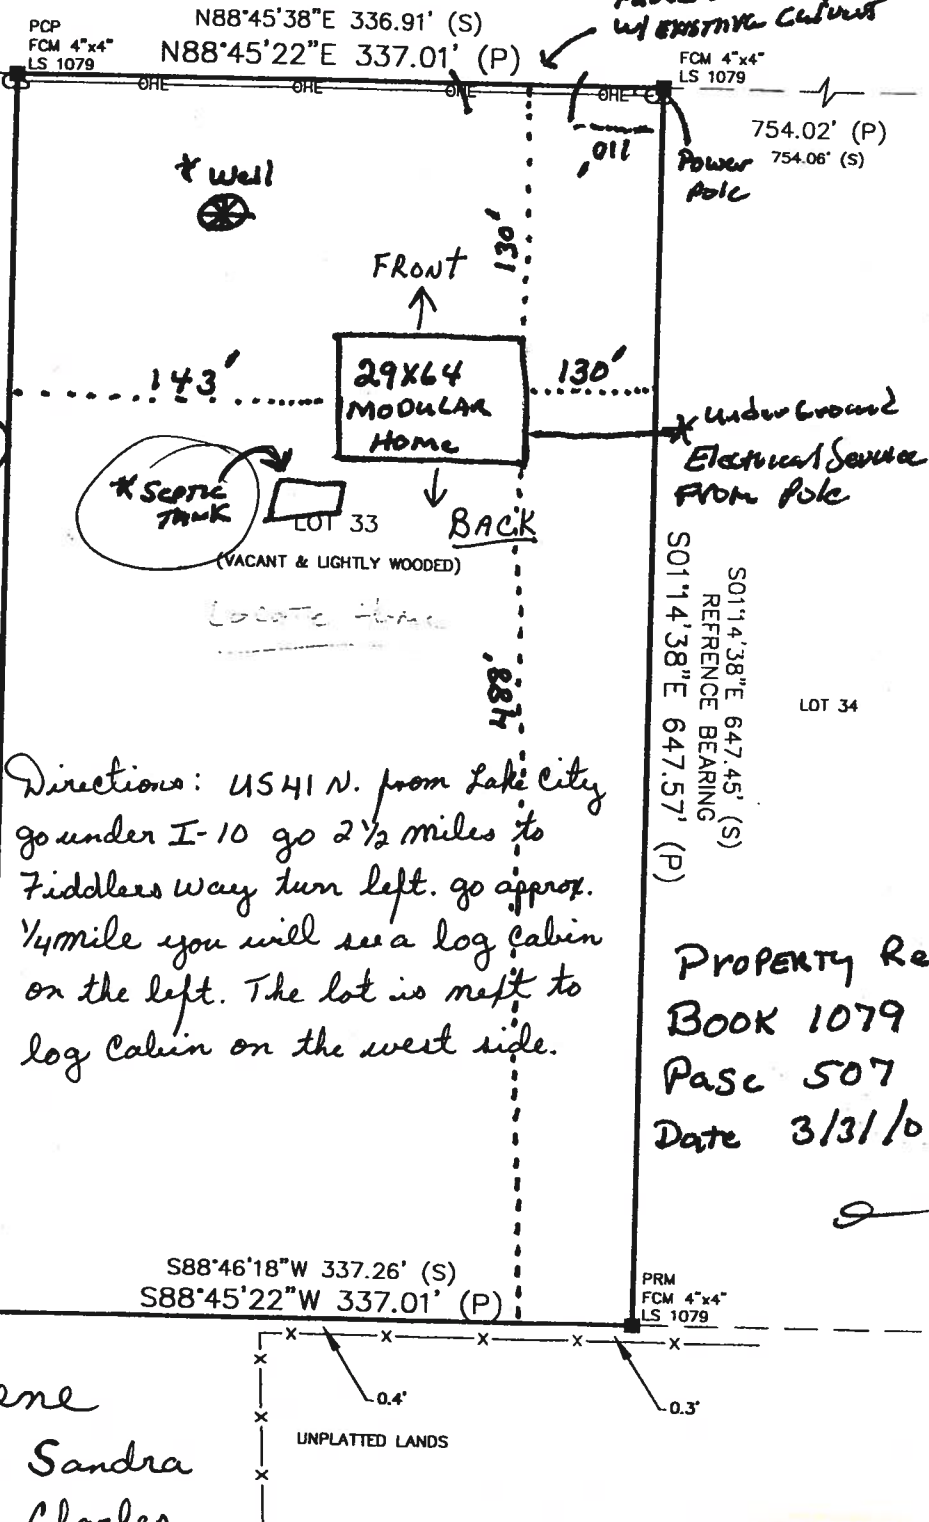 N88°45'38"E 336.91' (S)
N88°45'22"E 337.01' (P)
PCP
FCM 4"x4"
LS 1079
w/ EXISTING Culvert
FCM 4"x4"
LS 1079
OHE
OHE
OHE
OHE
754.02' (P)
754.06' (S)
110'
Power
Pole
* Well
130'
FRONT
143'
29X64
MODULAR
HOME
130'
* Under Ground
Electrical Service
From Pole
* SEPTIC
TANK
LOT 33
BACK
(VACANT & LIGHTLY WOODED)
Locate Home
488'
S01°14'38"E 647.45' (S)
REFRENCE BEARING
S01°14'38"E 647.57' (P)
LOT 34
Directions: US 41 N. from Lake City
go under I-10 go 2 1/2 miles to
Fiddlers Way turn left. go approx.
1/4 mile you will see a log cabin
on the left. The lot is next to
log Cabin on the west side.
PROPERTY Re
BOOK 1079
Page 507
Date 3/31/0
S88°46'18"W 337.26' (S)
S88°45'22"W 337.01' (P)
PRM
FCM 4"x4"
LS 1079
0.4'
0.3'
UNPLATTED LANDS
ene
Sandra
Charles